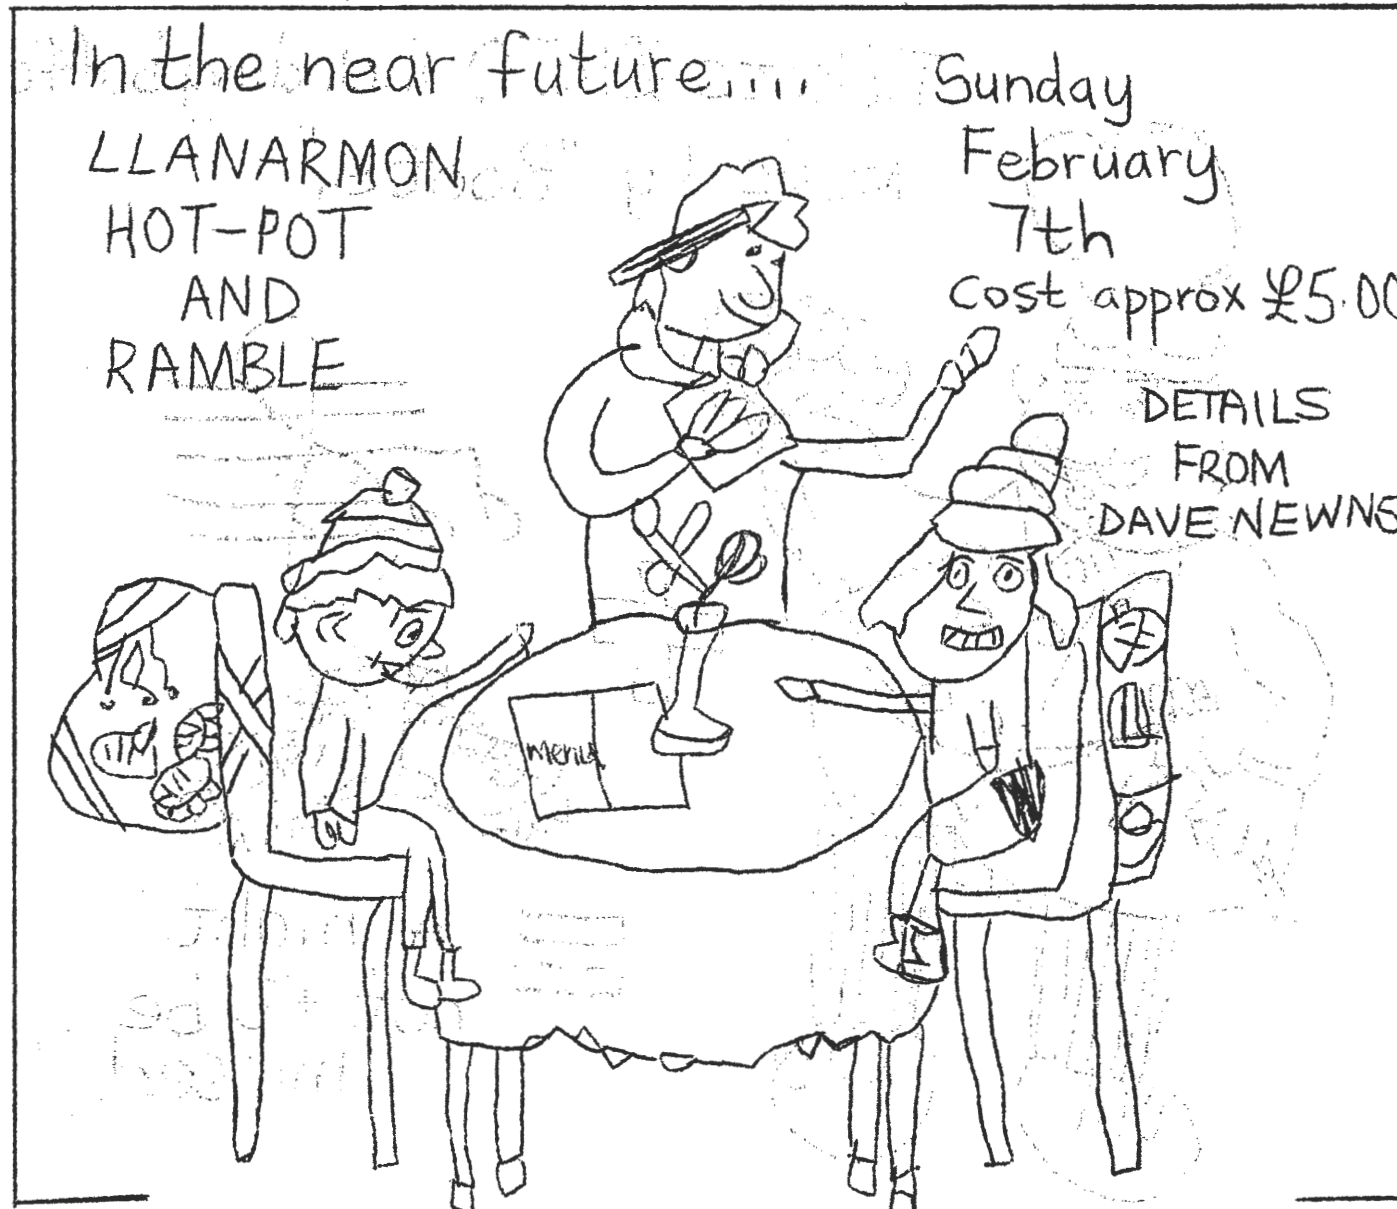 In the near future....
LLANARMON
HOT-POT
AND
RAMBLE
Sunday
February
7th
Cost approx £5.00
DETAILS
FROM
DAVE NEWNS
menu